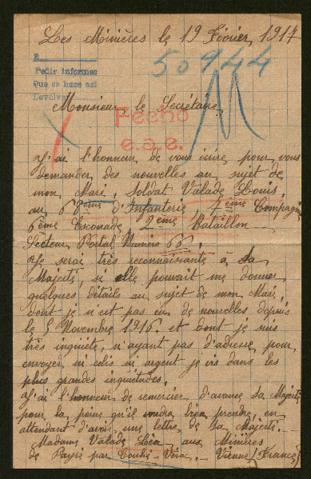 Les Minières le 19 Février 1917
50944
Pedir informes
que se hace así
Monsieur le Secrétaire,
Fecho
J'ai l'honneur de vous écrire pour vous
demander des nouvelles au sujet de
mon Mari, Soldat Valade Louis
au 6 d'Infanterie, 7ème Compagnie
6ème Escouade, 2ème Bataillon
Secteur Postal Numéro 66.
Je serai très reconnaissante à Sa
Majesté, si elle pouvait me donner
quelques détails au sujet de mon Mari
dont je n'est pas eu de nouvelles depuis
le 5 Novembre 1916 et dont je suis
très inquiète, n'ayant pas d'adresse, pour
envoyer, ni colis ni argent je vis dans les
plus grandes inquiétudes.
J'ai l'honneur de remercier d'avance Sa Majesté
pour la peine qu'il voudra bien prendre, en
attendant d'avoir une lettre de Sa Majesté.
Madame Valade Léa aux Minières
de Payré par Couhé-Vérac Vienne (France)